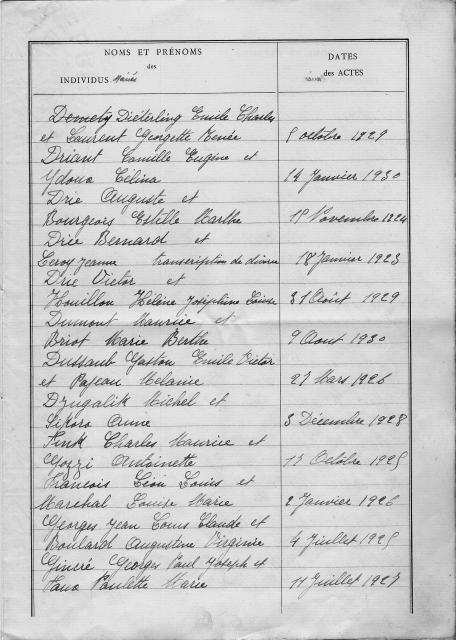 NOMS ET PRÉNOMS
des
INDIVIDUS Mariés
DATES
des ACTES
Demety Dieterling Emile Charles
et Laurent Georgette Renée 5 octobre 1929
Driant Camille Eugène et
Ydoux Célina 14 Janvier 1930
Drie Auguste et
Bourgeois Estille Marthe 15 Novembre 1924
Drie Bernard et
Leroy Jeanne transcription de divorce 18 Janvier 1923
Drie Victor et
Houillon Hélène Joséphine Louise 31 Août 1929
Dumont Maurice et
Briot Marie Berthe 9 Aout 1930
Dussaub Gaston Emile Victor
et Pajeau Melanie 27 Mars 1926
Dzugalik Michel et
Sikora Anne 3 Décembre 1928
Finck Charles Maurice et
Gozzi Antoinette 17 Octobre 1925
François Léon Louis et
Marchal Louise Marie 2 Janvier 1926
Georges Jean Louis Claude et
Boulard Augustine Virginie 4 Juillet 1925
Giucré Georges Paul Joseph et
Paulette Marie 11 Juillet 1927